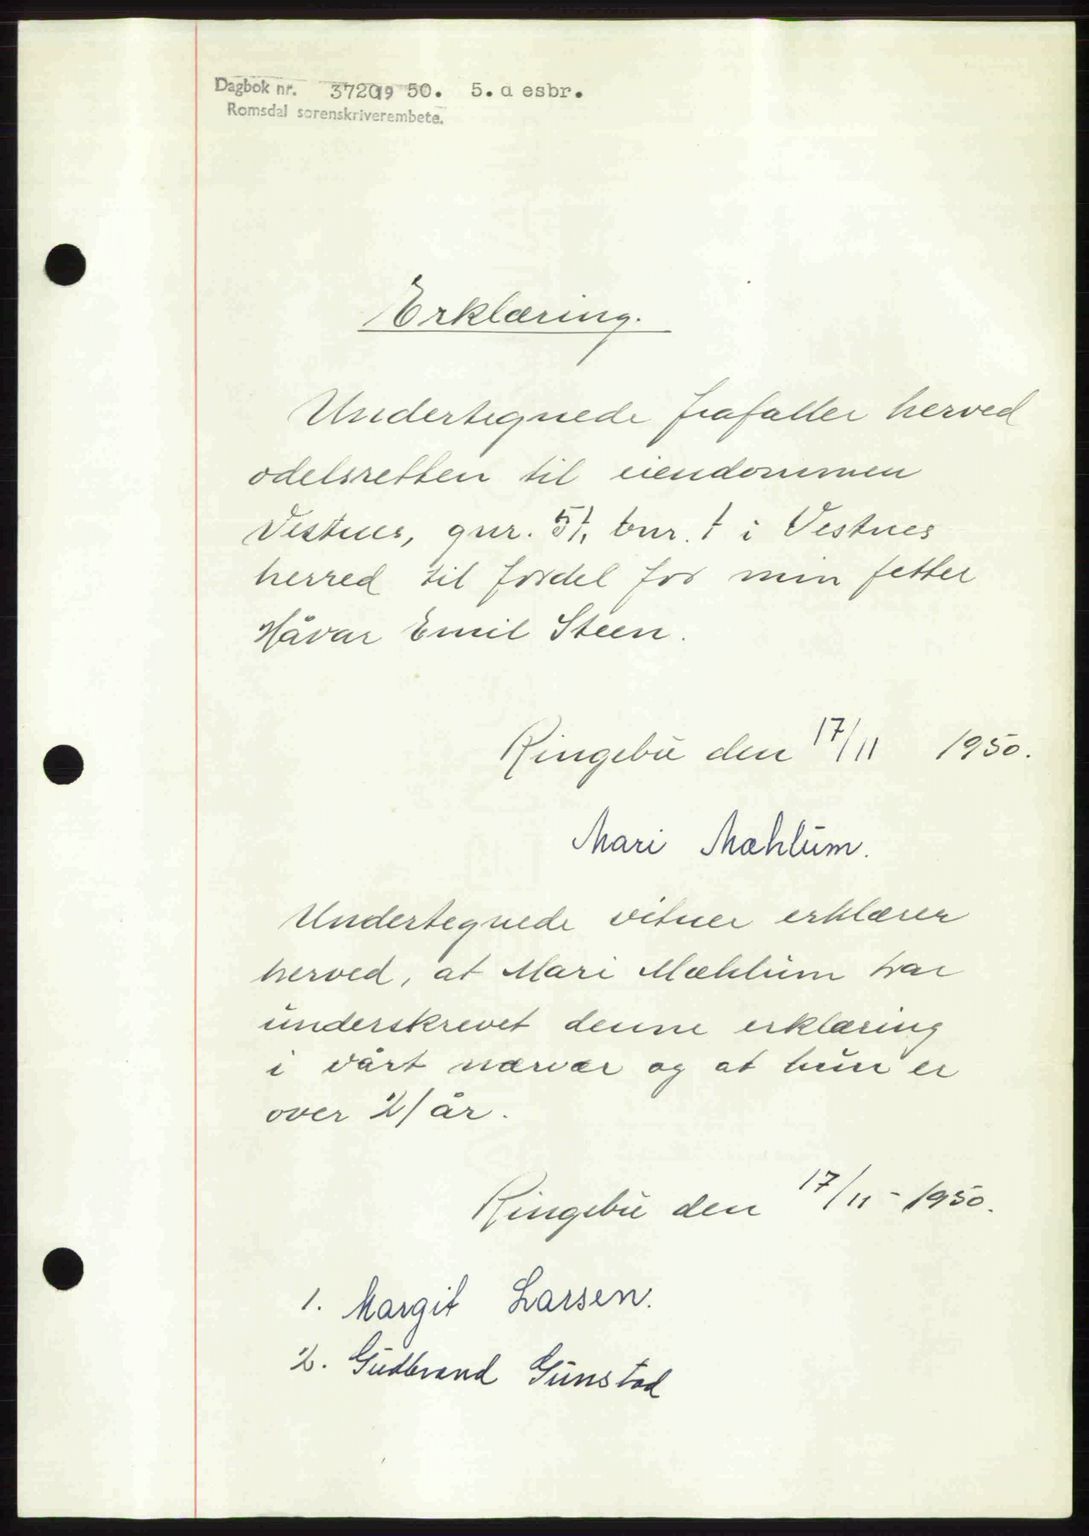 Dagbok nr. 3720 19 50. 5. desbr.
Romsdal sorenskriverembete.
Erklæring.
Undertegnede frafaller herved
odelsretten til eiendommen
Vestnes, gnr. 51, bnr. 1 i Vestnes
herred til fordel for min fetter
Håvar Emil Steen.
Ringebu den 17/11 1950.
Mari Mæhlum.
Undertegnede vitner erklærer
herved, at Mari Mæhlum har
underskrevet denne erklæring
i vårt nærvær og at hun er
over 21 år.
Ringebu den 17/11 - 1950.
1. Margit Larsen.
2. Gudbrand Gunstad